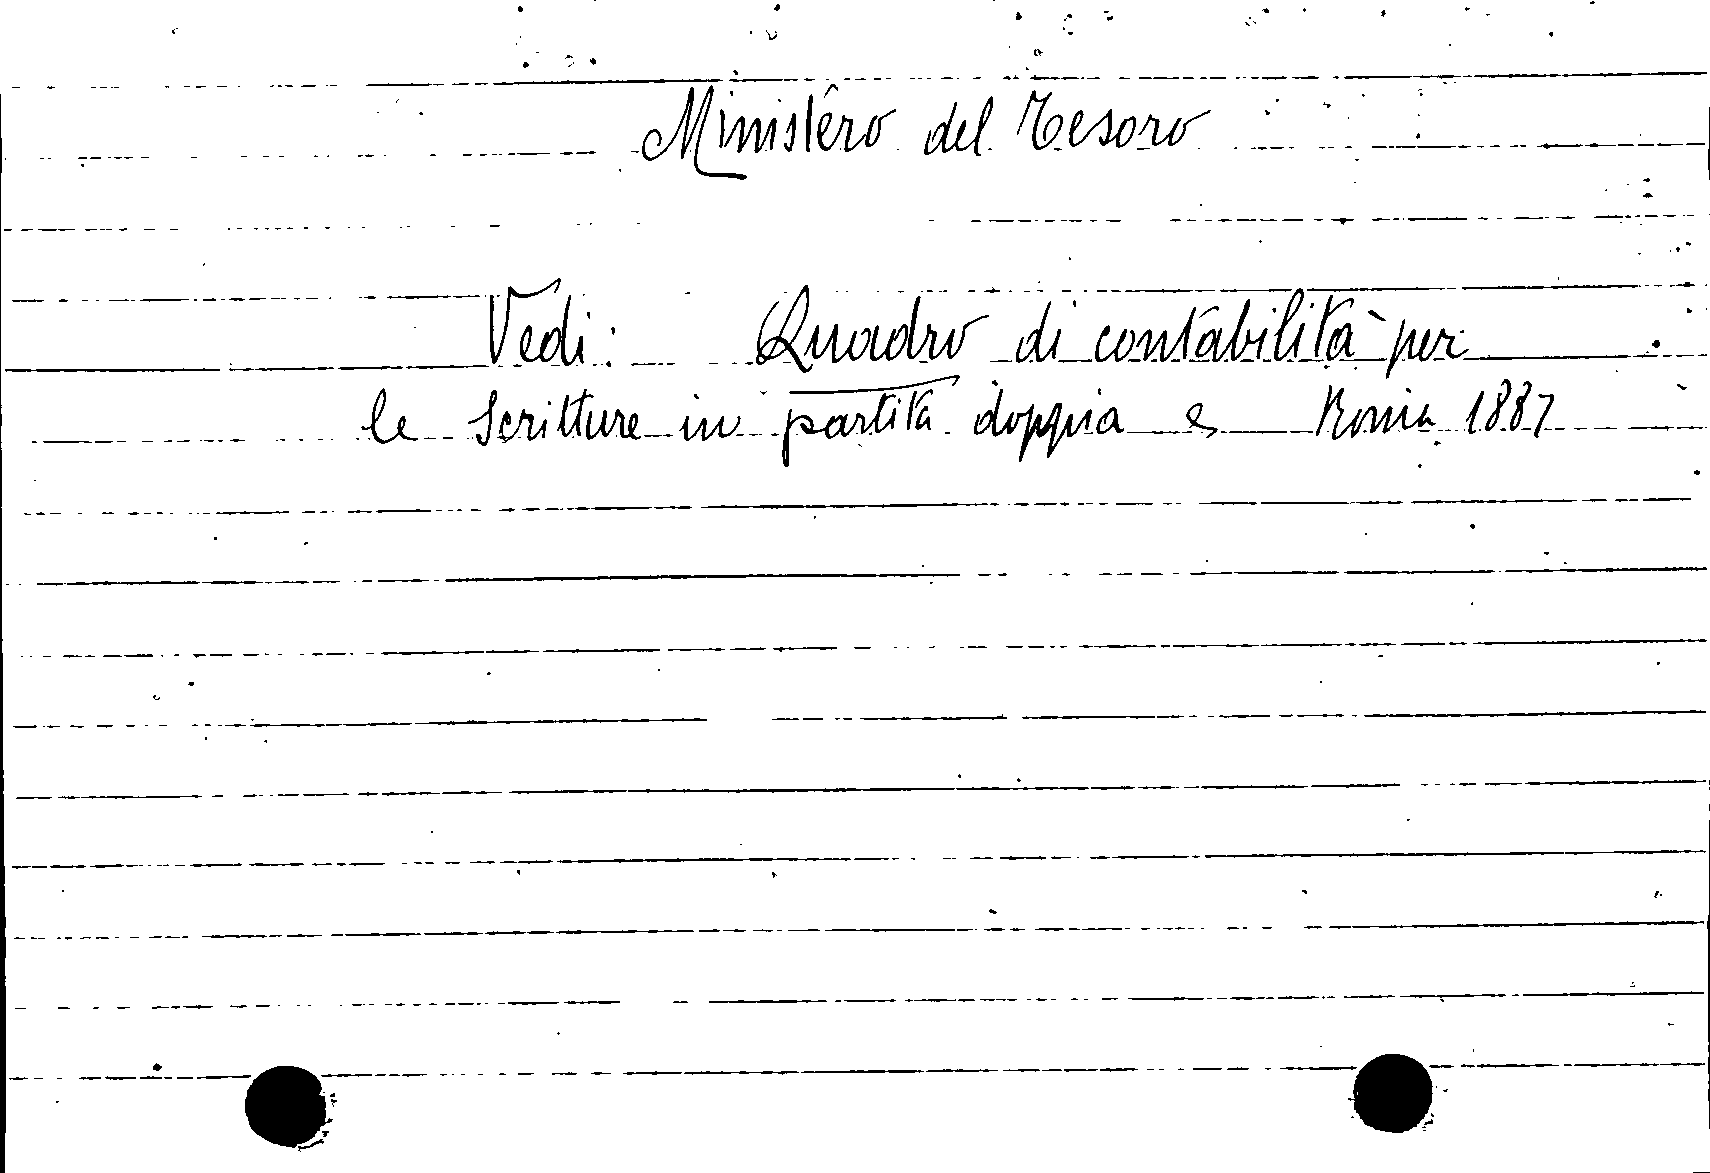 Ministero del Tesoro
Vedi: Quadro di contabilità per
le Scritture in partita doppia Roma 1887